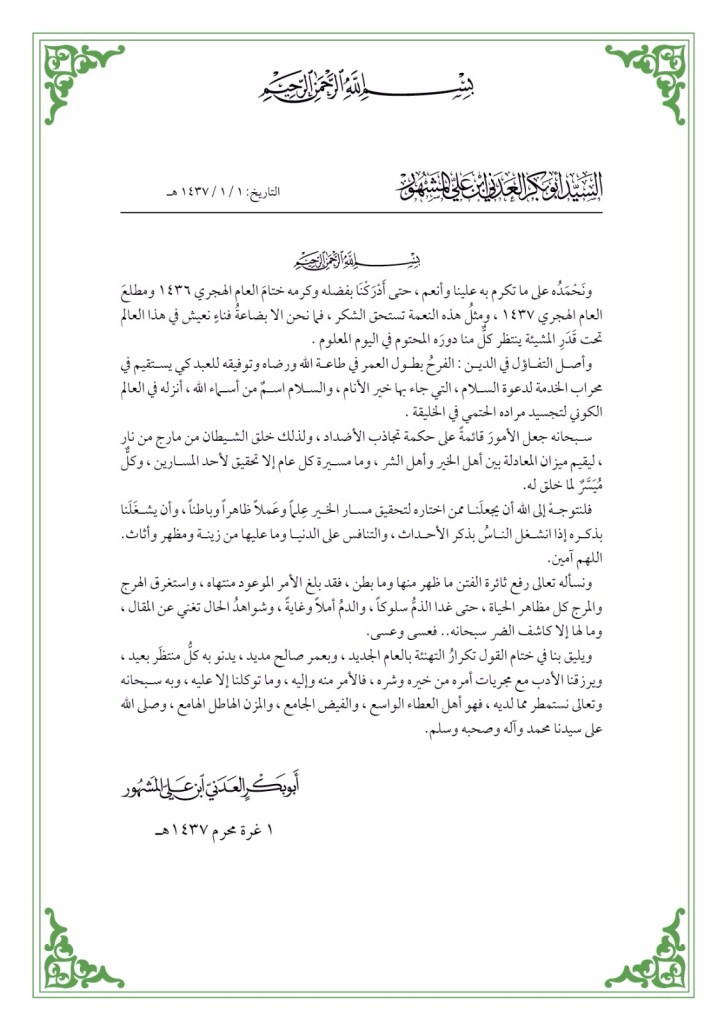 بِسْمِ اللَّهِ الرَّحْمَٰنِ الرَّحِيمِ
السيد أبوبكر العدني ابن علي المشهور
التاريخ: ١ / ١ / ١٤٣٧ هـ
بِسْمِ اللَّهِ الرَّحْمَٰنِ الرَّحِيمِ
ونَحْمَدُه على ما تكرم به علينا وأنعم ، حتى أَدْرَكْنَا بفضله وكرمه ختامَ العام الهجري ١٤٣٦ ومطلعَ
العام الهجري ١٤٣٧ ، ومثلُ هذه النعمة تستحق الشكر ، فما نحن الا بضاعةُ فناءٍ نعيش في هذا العالم
تحت قَدَرِ المشيئة ينتظر كلٌّ منا دورَه المحتوم في اليوم المعلوم .
وأصل التفاؤل في الدين : الفرحُ بطول العمر في طاعة الله ورضاه وتوفيقه للعبد كي يستقيم في
محراب الخدمة لدعوة السلام ، التي جاء بها خير الأنام ، والسلام اسمٌ من أسماء الله ، أنزله في العالم
الكوني لتجسيد مراده الحتمي في الخليقة .
سبحانه جعل الأمورَ قائمةً على حكمة تجاذب الأضداد ، ولذلك خلق الشيطان من مارج من نار
، ليقيم ميزان المعادلة بين أهل الخير وأهل الشر ، وما مسيرة كل عام إلا تحقيق لأحد المسارين ، وكلٌّ
مُيَسَّرٌ لما خلق له.
فلنتوجهْ إلى الله أن يجعلَنا ممن اختاره لتحقيق مسار الخير عِلماً وعَملاً ظاهراً وباطناً ، وأن يشغَلَنا
بذكره إذا انشغل الناسُ بذكر الأحداث ، والتنافس على الدنيا وما عليها من زينة ومظهر وأثاث.
اللهم آمين.
ونسأله تعالى رفع ثائرة الفتن ما ظهر منها وما بطن ، فقد بلغ الأمر الموعود منتهاه ، واستغرق الهرج
والمرج كل مظاهر الحياة ، حتى غدا الذمُّ سلوكاً ، والدمُ أملاً وغايةً ، وشواهدُ الحال تغني عن المقال ،
وما لها إلا كاشف الضر سبحانه.. فعسى وعسى.
ويليق بنا في ختام القول تكرارُ التهنئة بالعام الجديد ، وبعمر صالح مديد ، يدنو به كلُّ منتظَر بعيد ،
ويرزقنا الأدب مع مجريات أمره من خيره وشره ، فالأمر منه وإليه ، وما توكلنا إلا عليه ، وبه سبحانه
وتعالى نستمطر مما لديه ، فهو أهل العطاء الواسع ، والفيض الجامع ، والمزن الهاطل الهامع ، وصلى الله
على سيدنا محمد وآله وصحبه وسلم.
أبوبكر العدني ابن علي المشهور
١ غرة محرم ١٤٣٧هـ